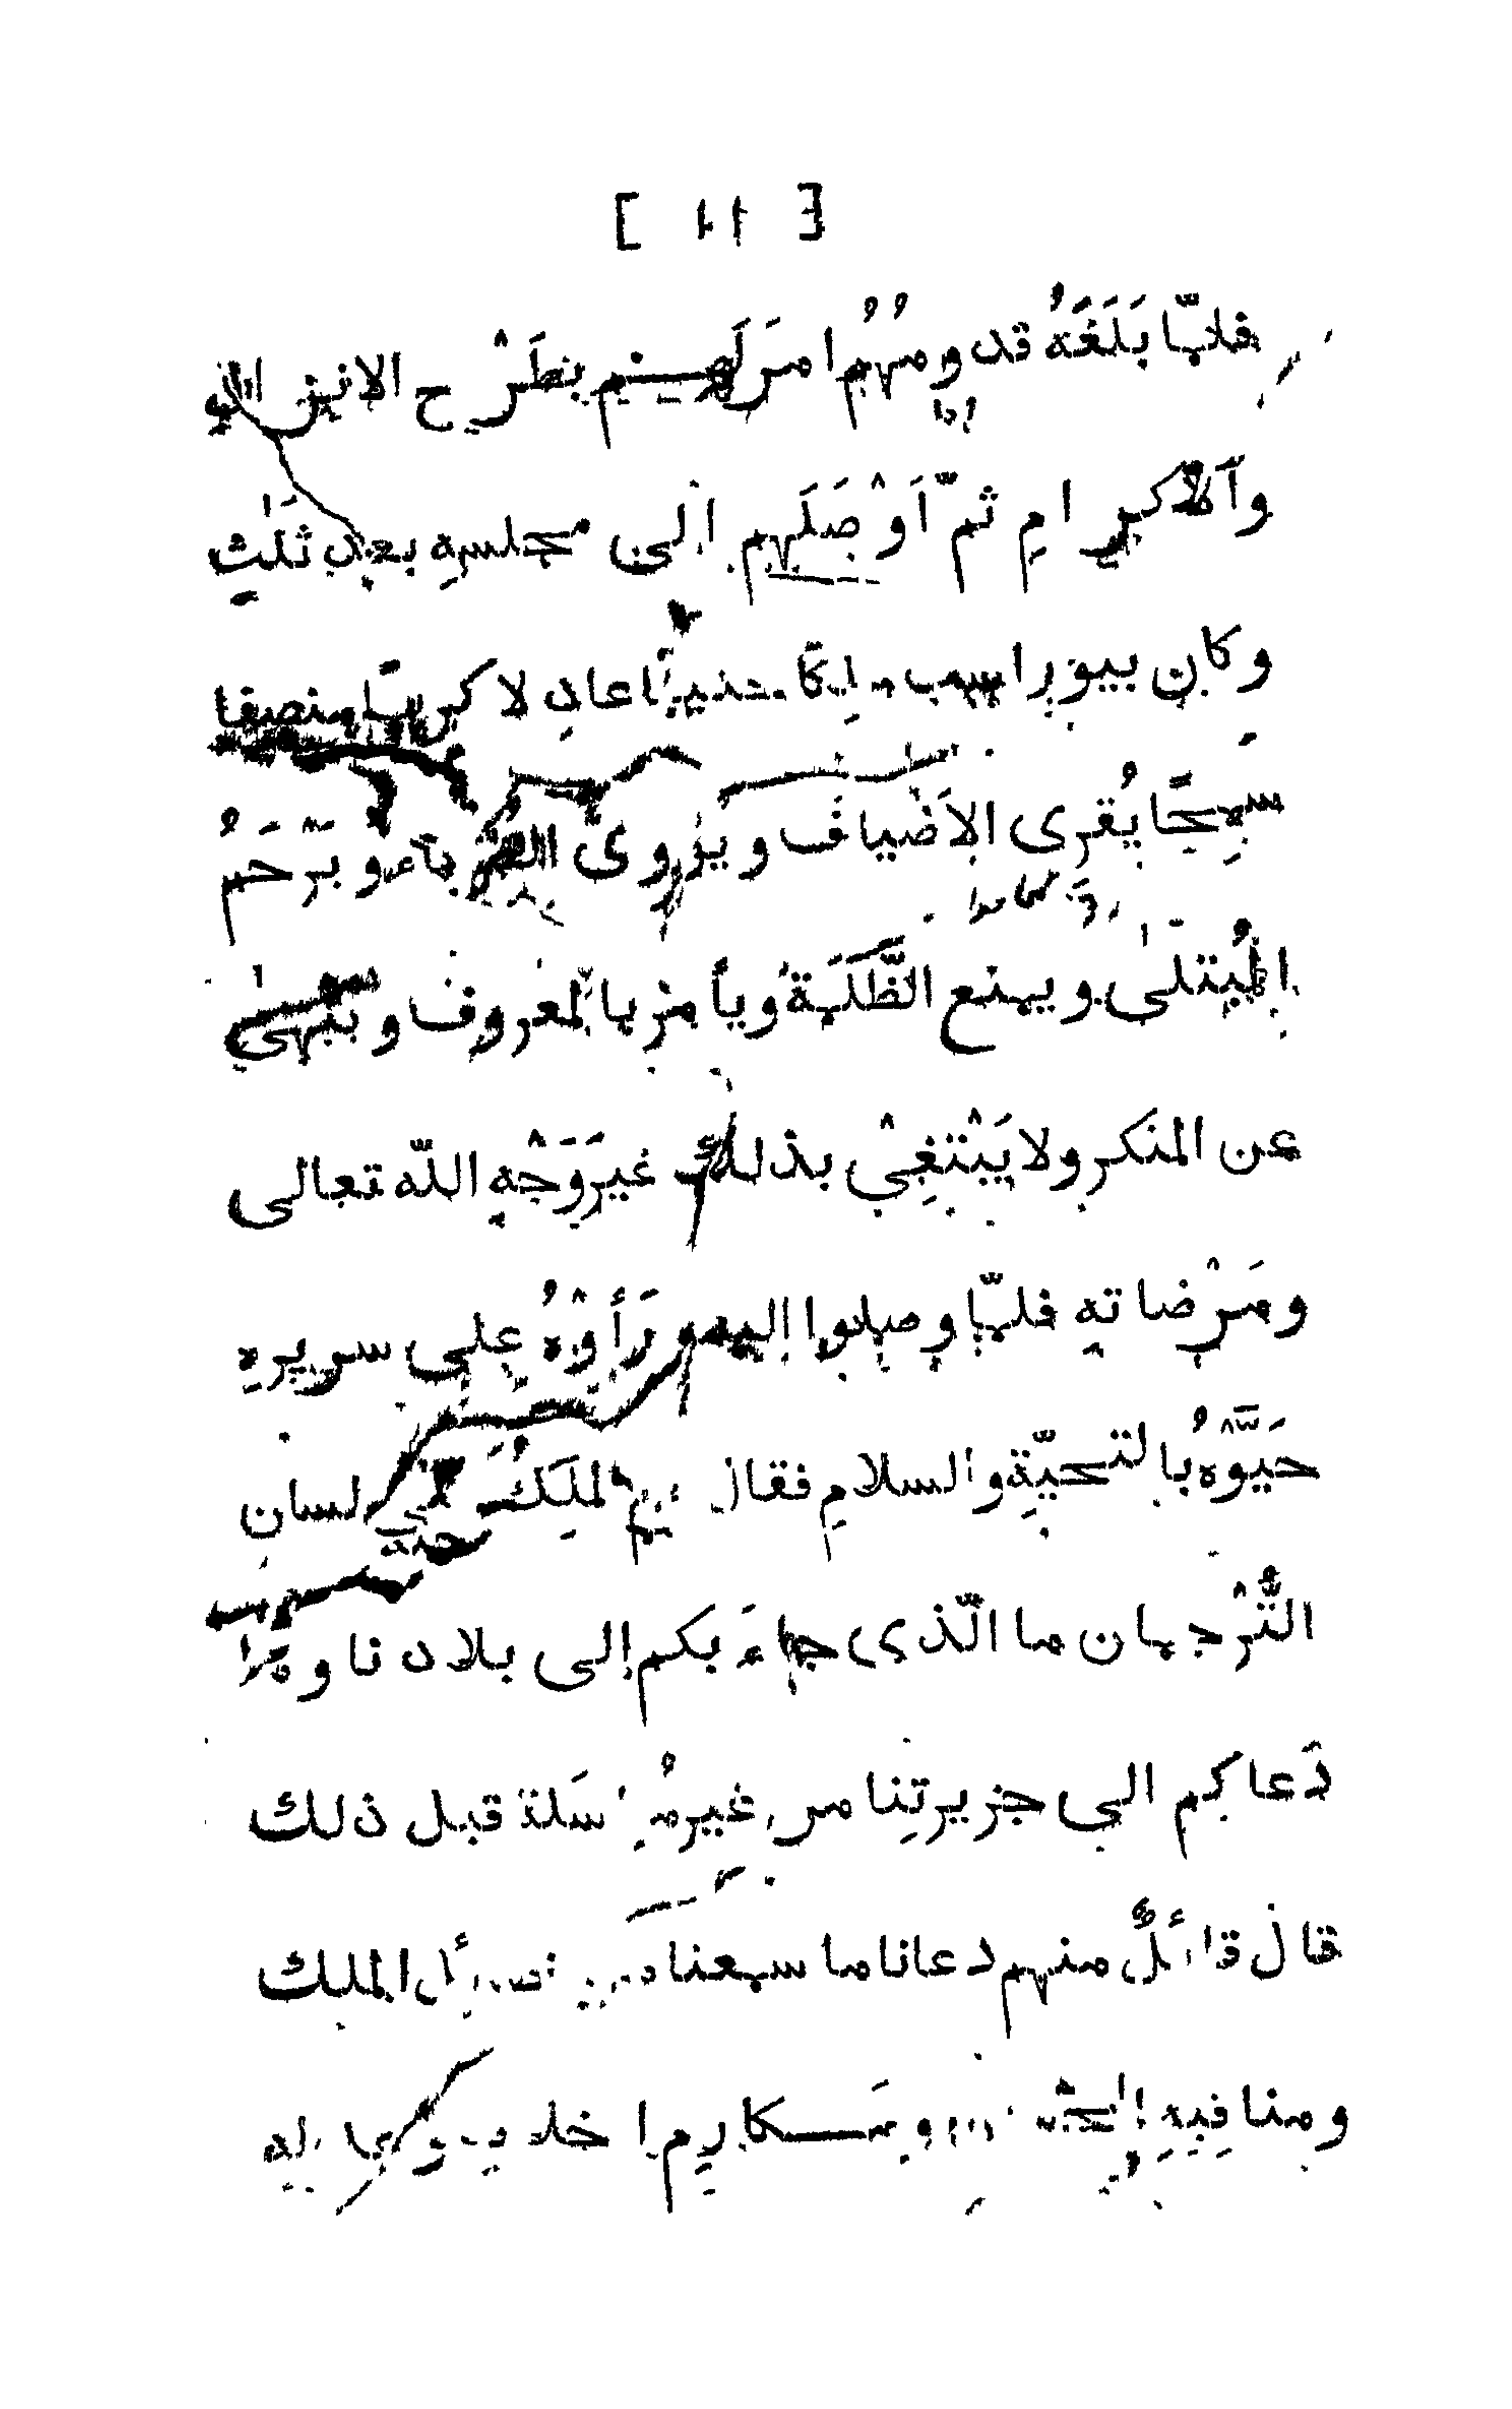 [ ١١ ]
فلمّا بَلَغَهُ قدومُهُم امَرَ لهم بطَرْح الانزال
وَالاكرام ثمّ اَوْصَلَهم الى مجلسِه بعد ثَلٰثٍ
وكان بيوراسب ملكًا عادلا كريمًا منصفا
سمِحًا يُقرى الاَضيافَ ويُؤوى الغرباء ويَرْحَمُ
المُبتلىٰ ويمنع الظَّلَمَةَ ويأمر بالمعروف وينهىٰ
عن المنكر ولا يَبْتَغِىْ بذلك غيرَ وَجْهِ اللّه تعالى
ومَرْضاتِه فلمّا وصلوا اليه ورَأَوْهُ على سريرِه
حَيَّوْهُ بالتحيّةِ والسلامِ فقال لهم المَلِكُ على لسان
التُّرْجمان ما الّذى جاءَ بكم إلى بلادنا وما
دَعاكم الى جزيرتِنا من غيرِ مُراسَلة قبل ذلك
قال قائلٌ منهم دعانا ما سمعنا من فضائل الملك
ومناقبِهِ ومَكارِمِ اخلاقه